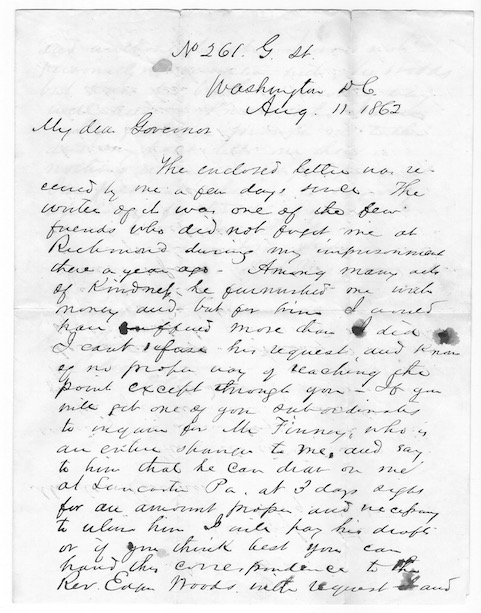 No 261. G. St.
Washington D.C.
Aug. 11. 1862
My dear Governor
The enclosed letter was re-
ceived by me a few days since. The
writer of it was one of the few
friends who did not forget me at
Richmond during my imprisonment
there a year ago - Among many acts
of Kindness he furnished me with
money and but for him I would
have suffered more than I did
I cant refuse his request, and know
of no proper way of reaching the
point except through you - If you
will get one of your subordinates
to inquire for Mr Finney, who is
an entire stranger to me, and say
to him that he can draw on me
at Lancaster Pa. at 3 days sight
for an amount proper and necessary
to him I will pay his draft
or if you think best you can
hand this correspondence to the
Rev. Edgar Woods. with request and